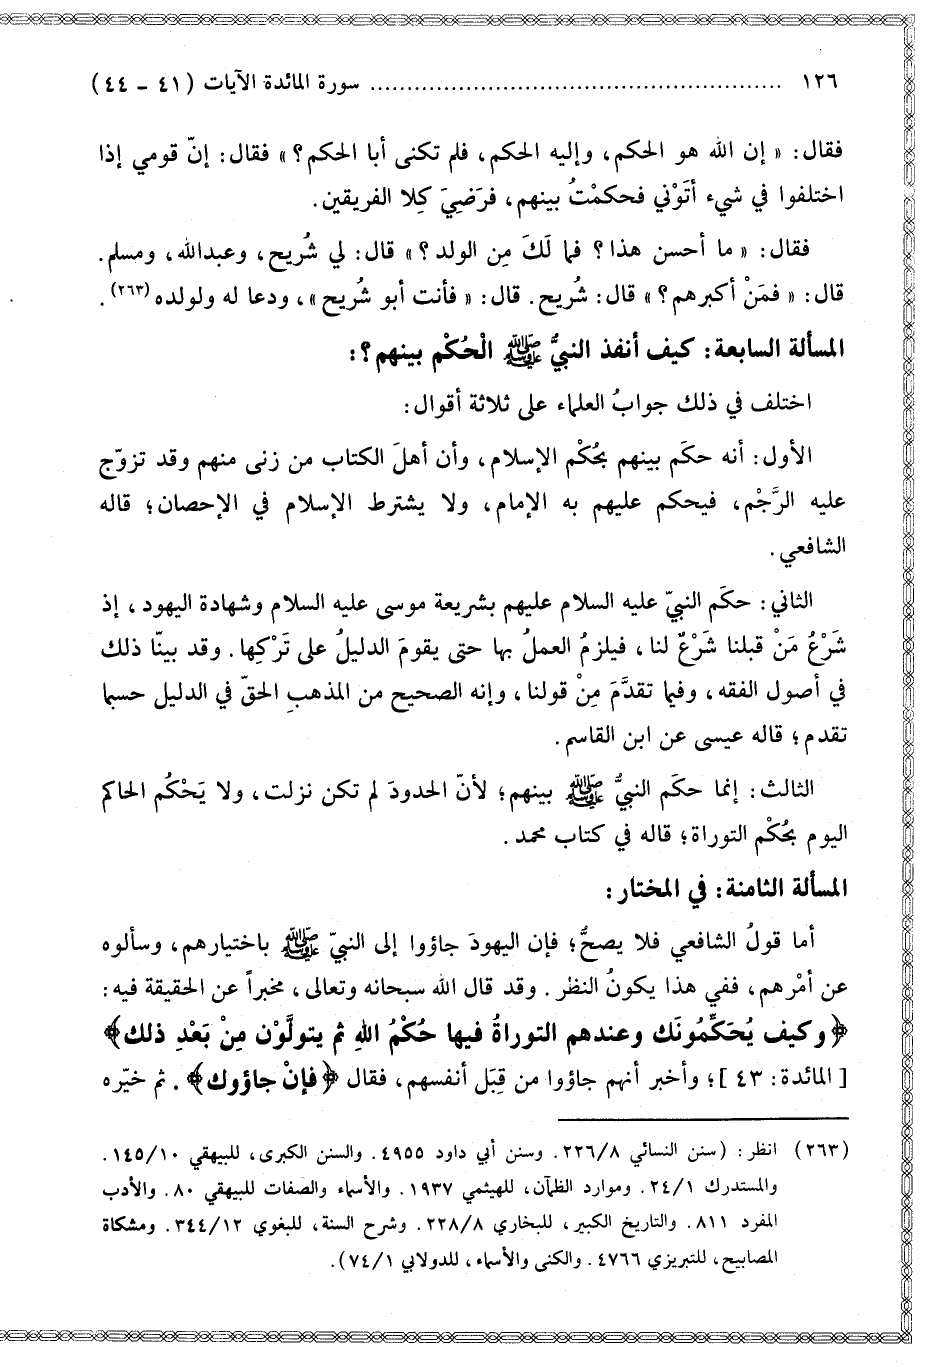 ١٢٦ ........................................................ سورة المائدة الآيات ( ٤١ - ٤٤ )
فقال: « إن الله هو الحكم، وإليه الحكم، فلم تكنى أبا الحكم؟ » فقال: إنّ قومي إذا
اختلفوا في شيء أتَوْني فحكمْتُ بينهم، فرَضِيَ كِلا الفريقين.
فقال: « ما أحسن هذا؟ فما لَكَ مِن الولد؟ » قال: لي شُريح، وعبدالله، ومسلم.
قال: « فمَنْ أكبرهم؟ » قال: شُريح. قال: « فأنت أبو شُريح »، ودعا له ولولده (٢٦٣).
المسألة السابعة: كيف أنفذ النبيُّ ﷺ الْحُكْم بينهم؟:
اختلف في ذلك جوابُ العلماء على ثلاثة أقوال:
الأول: أنه حكَم بينهم بحُكْم الإسلام، وأن أهلَ الكتاب من زنى منهم وقد تزوّج
عليه الرَّجْم، فيحكم عليهم به الإمام، ولا يشترط الإسلام في الإحصان؛ قاله
الشافعي.
الثاني: حكَم النبيّ عليه السلام عليهم بشريعة موسى عليه السلام وشهادة اليهود، إذ
شَرْعُ مَنْ قبلنا شَرْعٌ لنا، فيلزمُ العملُ بها حتى يقومَ الدليلُ على تَرْكِها. وقد بينّا ذلك
في أصول الفقه، وفيما تقدَّمَ مِنْ قولنا، وإنه الصحيح من المذهبِ الحقّ في الدليل حسبما
تقدم؛ قاله عيسى عن ابن القاسم.
الثالث: إنما حكَم النبيُّ ﷺ بينهم؛ لأنّ الحدودَ لم تكن نزلت، ولا يَحْكُم الحاكم
اليوم بحُكْم التوراة؛ قاله في كتاب محمد.
المسألة الثامنة: في المختار:
أما قولُ الشافعي فلا يصحُّ؛ فإن اليهودَ جاؤوا إلى النبيّ ﷺ باختيارهم، وسألوه
عن أمْرهم، ففي هذا يكونُ النظر. وقد قال الله سبحانه وتعالى، مخبراً عن الحقيقة فيه:
﴿وكيف يُحَكِّمُونَك وعندهم التوراةُ فيها حُكْمُ اللهِ ثم يتولَّوْن مِنْ بَعْدِ ذلك﴾
[ المائدة: ٤٣ ]؛ وأخبر أنهم جاؤوا من قِبَل أنفسهم، فقال ﴿فإنْ جاؤوك﴾. ثم خيّره
(٢٦٣) انظر: (سنن النسائي ٢٢٦/٨. وسنن أبي داود ٤٩٥٥. والسنن الكبرى، للبيهقي ١٤٥/١٠.
والمستدرك ٢٤/١. وموارد الظمآن، للهيثمي ١٩٣٧. والأسماء والصفات للبيهقي ٨٠. والأدب
المفرد ٨١١. والتاريخ الكبير، للبخاري ٢٢٨/٨. وشرح السنة، للبغوي ٣٤٤/١٢. ومشكاة
المصابيح، للتبريزي ٤٧٦٦. والكنى والأسماء، للدولابي ٧٤/١).